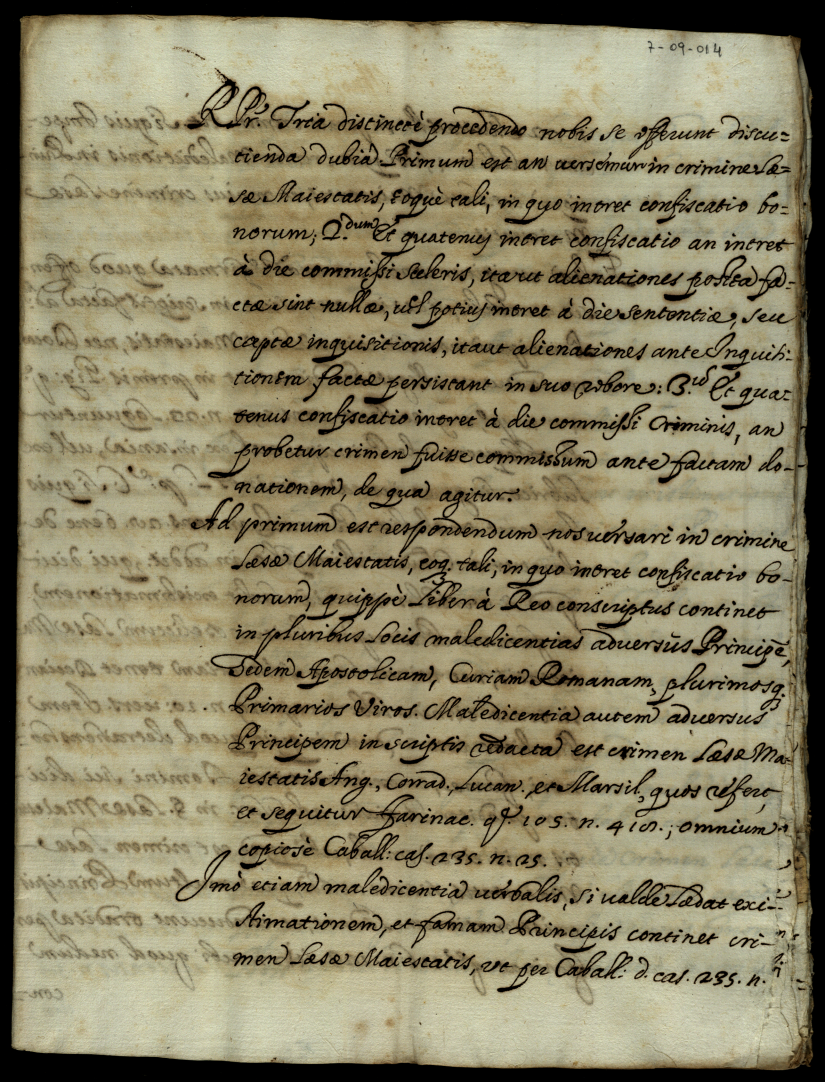 7-09-014
RPr. Tria distinctè procedendo nobis se offerunt discu=
tienda dubia. Primum est an versemur in crimine Læ=
sæ Maiestatis, eoquè tali, in quo intret confiscatio bo=
norum; 2.dum Et quatenus intret confiscatio an intret
à die commissi sceleris, ita ut alienationes postea fa=
ctæ sint nullæ, vel potius intret à die sententiæ, seu
captæ inquisitionis, itaut alienationes ante Inquisi=
tionem factæ persistant in suo robore: 3.ud Et qua=
tenus confiscatio intret à die commissi Criminis, an
probetur crimen fuisse commissum ante factam do-
nationem, de qua agitur.
Ad primum est respondendum nos versari in crimine
Læsæ Maiestatis, eoq. tali, in quo intret confiscatio bo-
norum, quippè Liber à Reo conscriptus continet
in pluribus Locis maledicentias adversus Principē,
Sedem Apostolicam, Curiam Romanam, plurimosq.
Primarios Viros. Maledicentia autem adversus
Principem in scriptis redacta est crimen Læsæ Ma-
iestatis Ang., Conrad., Lucan., et Marsil., quos refert,
et sequitur Farinac. q. 105. n. 418.; omnium
copiosè Caball: cas. 235. n. 25.
Imò etiam maledicentia verbalis, si valde Lædat exi-
stimationem, et famam Principis continet cri-
men Læsæ Maiestatis, ut per Caball: d. cas. 235. n.